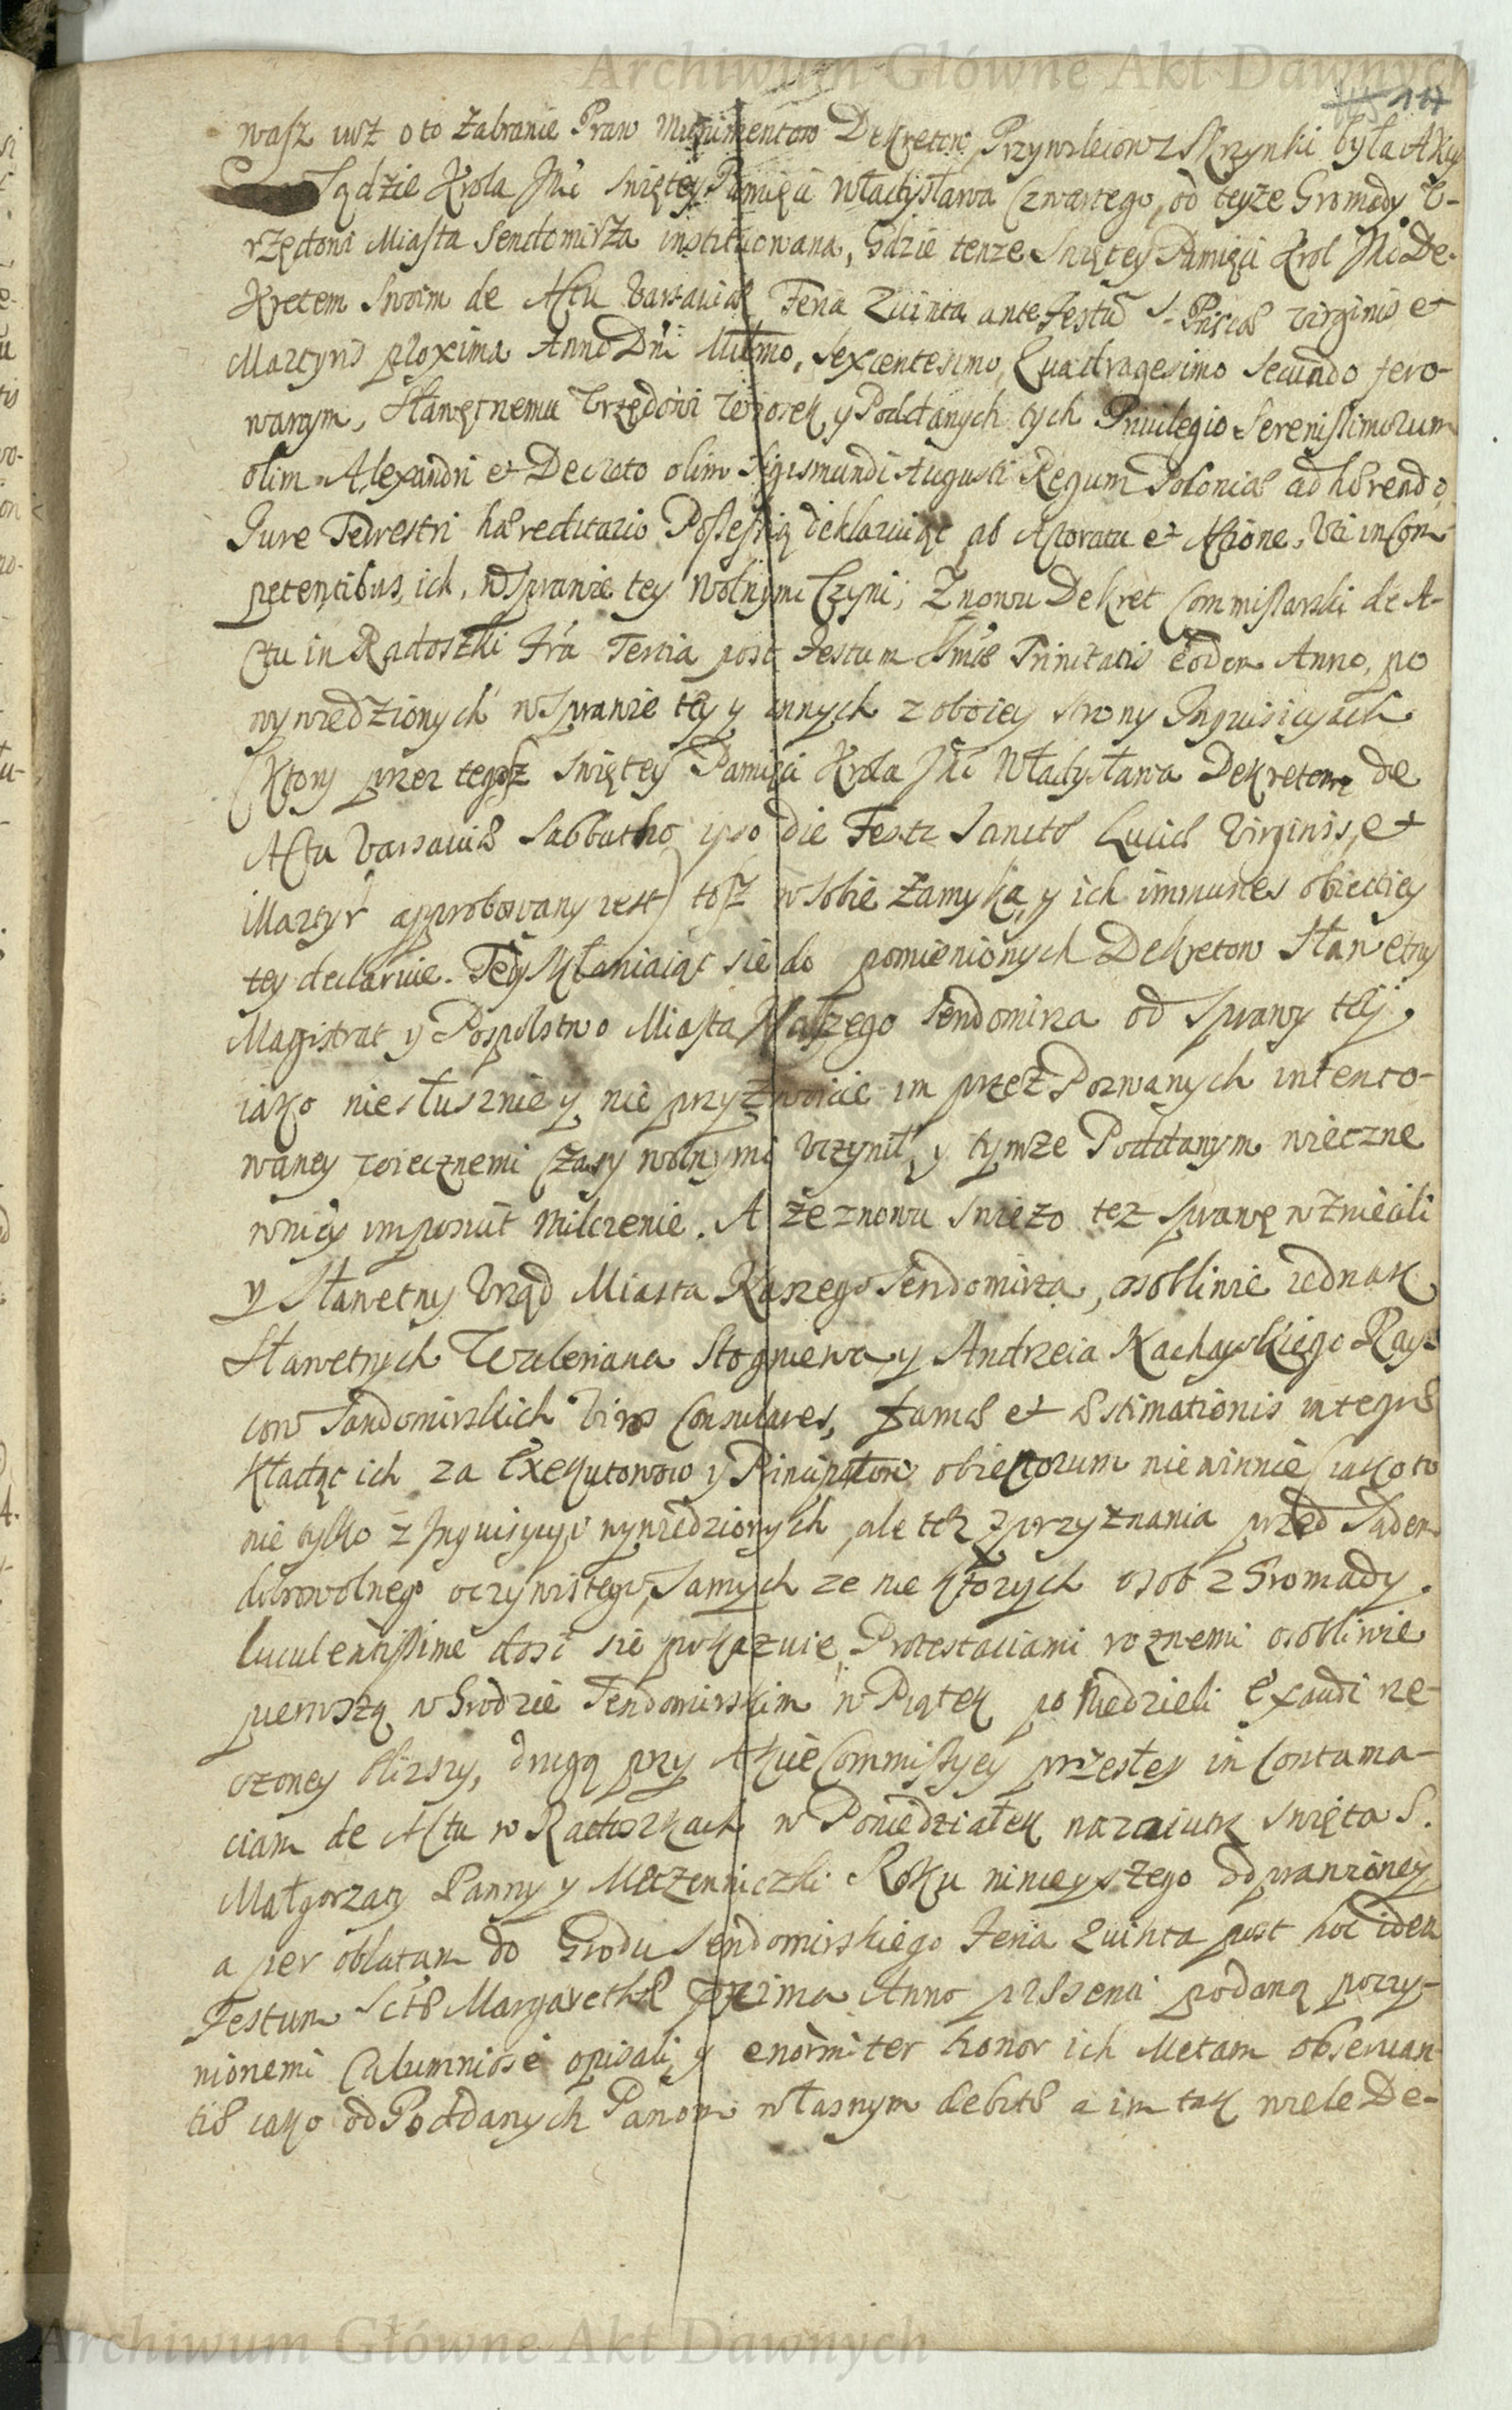 Archiwum Główne Akt Dawnych
117
wasz iusz o to zabranie Praw Munimentow Dekretow Przywileiow z Skrzynki była Akcya
Sądzie Krola JMci Swiętey Pamięci Władysława Czwartego, od teyże Gromady U-
rzędowi Miasta Sendomirza instituowana, Gdzie tenze Swiętey Pamięci Krol JMc De-
kretem Swoim de Actu Varsaviæ Feria Quinta ante Festũ S. Priscæ Virginis et
Martyris proxima Anno Dni Millmo, Sexcentesimo, Quadragesimo Secundo fero-
wanym, Sławętnemu Urzędowi Wiosek y Poddanych tych Privilegio Serenissimorum
olim Alexandri et Decreto olim Sigismundi Augusti Regum Poloniæ adhærendo,
Jure Terrestri hæreditario Possessią deklaruiąc ab Actoratu et Actione, Uti incom-
petentibus, ich, w Sprawie tey Wolnymi Czyni; Znowu Dekret Commissarski de A-
ctu in Radoszki Fra Tertia post Festum Ssmæ Trinitatis eodem Anno, po
wywiedzionych w Sprawie tey y innych z oboiey strony Inquisicyach
(Ktory przez tegosz Swiętey Pamięci Krola JMci Władysława Dekretem de
Actu Varsaviæ Sabbatho ipso die Festi Sanctæ Luciæ Virginis, et
Martyr approbowany iest) tosz w Sobie zamyka, y ich immunes obiectiey
tey declaruie. Tedy Skłaniaiąc się do pomienionych Dekretow Sławetny
Magistrat y Pospolstwo Miasta Naszego Sendomirza od Sprawy tey,
iako niesłusznie y nie przyzwoicie im przez Pozwanych intento-
waney wiecznemi Czasy wolnymi Uczynił, y tymze Poddanym wieczne
w niey imposuit Milczenie. A że znowu Swiezo tez Sprawę wzniecili
y Sławetny Urząd Miasta Naszego Sendomirza, osobliwie iednak
Sławetnych Waleriana Stogniewa y Andrzeia Kachaskiego Ray-
cow Sandomirskich Viros Consulares, famæ et æstimationis integræ
kładąc ich za Exekutorow y Principałow obiectorum niewinnie (iako to
nie tylko z Inquisycyi wywiedzionych, ale też z przyznania przed Sądem
dobrowolnego oczywistego, Samych ze nie ktorych osob z Gromady
luculentissime dosc się pokazuie, Protestaciami roznemi osobliwie
pierwszą w Grodzie Sendomirskim w Piątek po Niedzieli Exaudi rze-
czoney blizszy, drugą przy Akcie Commissyey przeszłey in Contuma-
ciam de Actu w Radoszkach w Poniedziałek nazaiutrz Swięta S.
Małgorzaty Panny y Męczenniczki Roku ninieyszego odprawioney,
a per oblatam do Grodu Sendomirskiego Feria Quinta post hoc idem
Festum Sctæ Margarethæ proxima Anno præsenti podaną poczy-
nionemi Calumniose opisali, y enormiter honor ich Metam observan-
tiæ iako od Poddanych Panom własnym debitæ a im tak wiele De-
Archiwum Główne Akt Dawnych